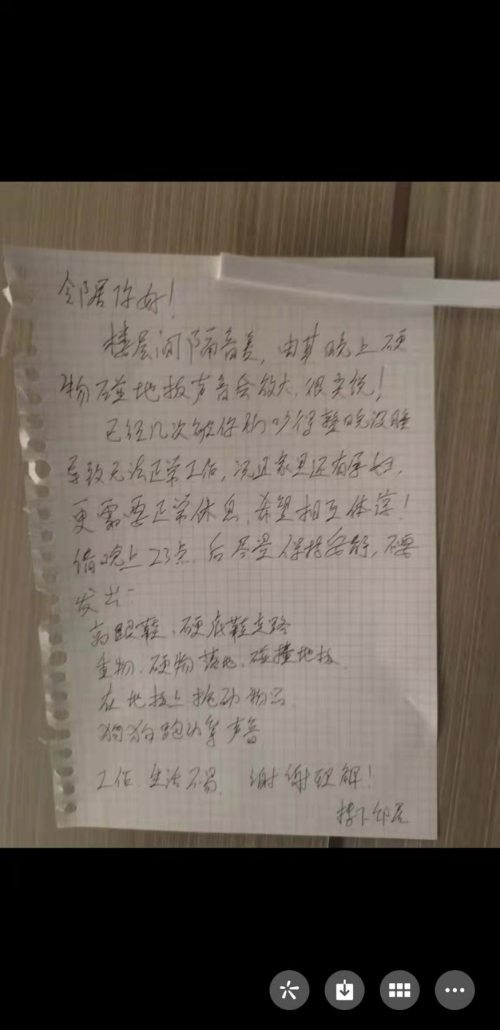 邻居你好！
楼层间隔音差，由其晚上硬
物碰地板声音会放大，很突然！
已经几次被你们吵得整晚没睡
导致无法正常工作，况且家里还有孕妇，
更需要正常休息，希望相互体谅！
请晚上23点后尽量保持安静，不要
发出：
高跟鞋、硬底鞋走路
重物、硬物落地、碰撞地板
在地板上拖动物品
狗狗跑动等声音
工作、生活不易，谢谢理解！
楼下邻居